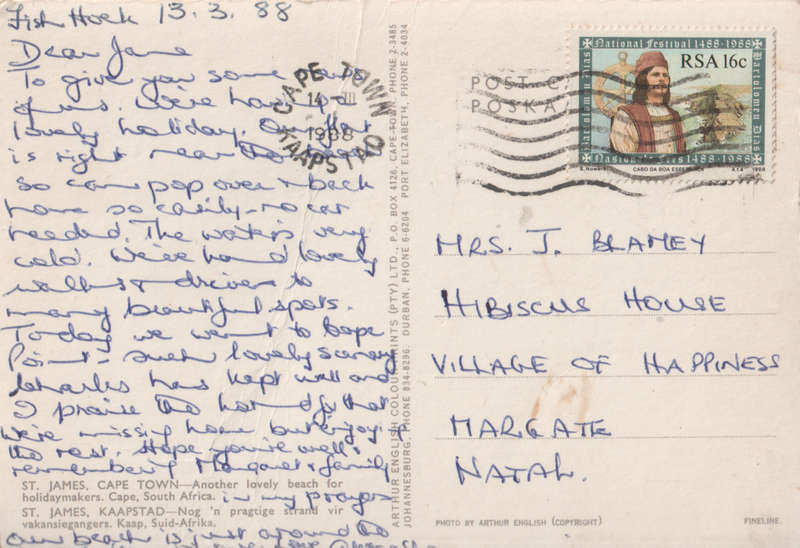 Fish Hoek 13.3.88
Dear Jane
To give you some news
of us. We're having a
lovely holiday. Our flat
is right near the
so can pop over & back
home so easily - no car
needed. The water's very
cold. We've had lovely
walks & drives to
many beautiful spots.
Today we went to Cape
Point - such lovely scenery
Charles has kept well and
I praise the Lord for that
We're missing home but enjoying
the rest. Hope you're well &
remembering Margaret & family
in my prayers
Our beach is just around the
ST. JAMES, CAPE TOWN—Another lovely beach for
holidaymakers. Cape, South Africa.
ST. JAMES, KAAPSTAD—Nog 'n pragtige strand vir
vakansiegangers. Kaap, Suid-Afrika.
ARTHUR ENGLISH COLOUR PRINTS (PTY) LTD., P.O. BOX 4126, CAPE TOWN, PHONE 2-3485
JOHANNESBURG, PHONE 834-8296. DURBAN, PHONE 6-6204 PORT ELIZABETH, PHONE 2-4034
CAPE TOWN
14 III
1988
KAAPSTAD
POST C
POSKA
National Festival 1488-1988
Bartolomeu Dias
RSA 16c
Bartolomeu Dias
Nasionale Fees 1488-1988
CABO DA BOA ESPERANÇA
MRS. J. BLAMEY
HIBISCUS HOUSE
VILLAGE OF HAPPINESS
MARGATE
NATAL.
PHOTO BY ARTHUR ENGLISH (COPYRIGHT)
FINELINE.